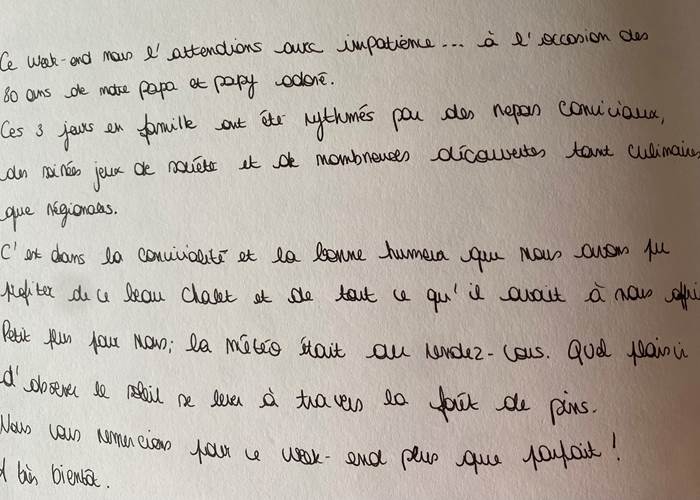 Ce week-end nous l'attendions avec impatience... à l'occasion des
80 ans de notre papa et papy adoré.
Ces 3 jours en famille ont été rythmés par des repas conviviaux,
des soirées jeux de société et de nombreuses découvertes tant culinaires
que régionales.
C'est dans la convivialité et la bonne humeur que nous avons pu
profiter de ce beau chalet et de tout ce qu'il avait à nous offrir
Petit plus pour nous; la météo était au rendez-vous. Quel plaisir
d'observer le soleil se lever à travers la forêt de pins.
Nous vous remercions pour ce week-end plus que parfait !
A très bientôt.